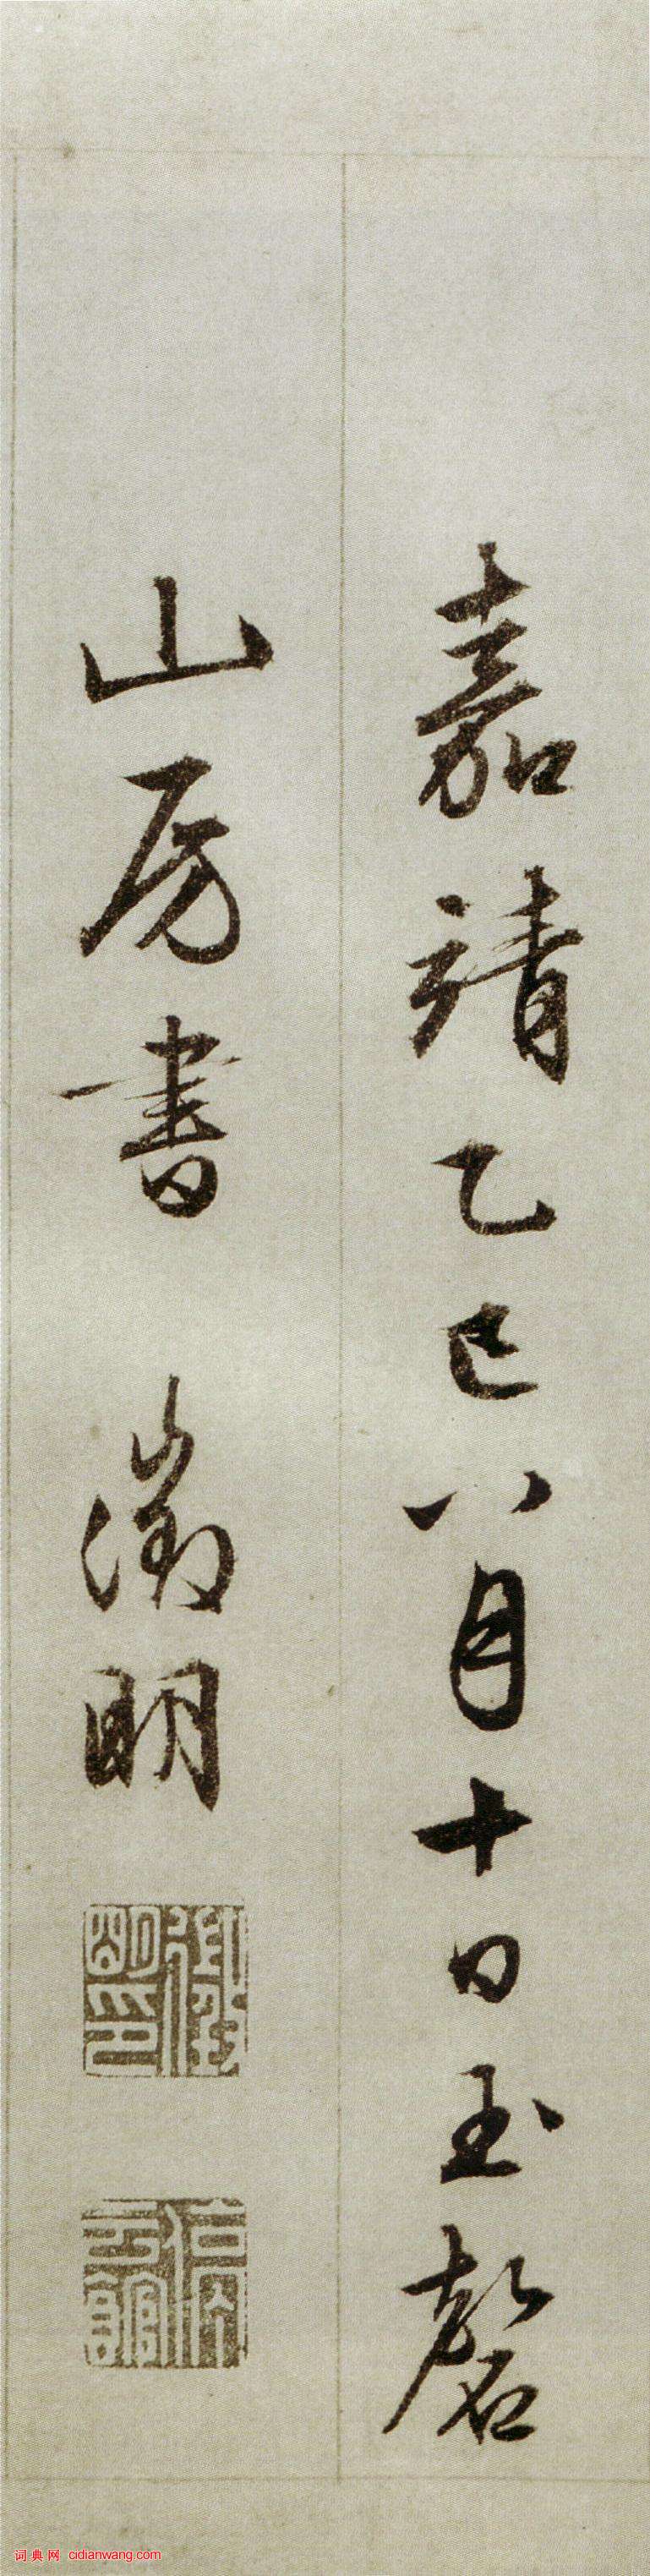 嘉靖乙巳八月十日玉磬
山房書 徵明
徵明印
停雲館
词典网 cidianwang.com